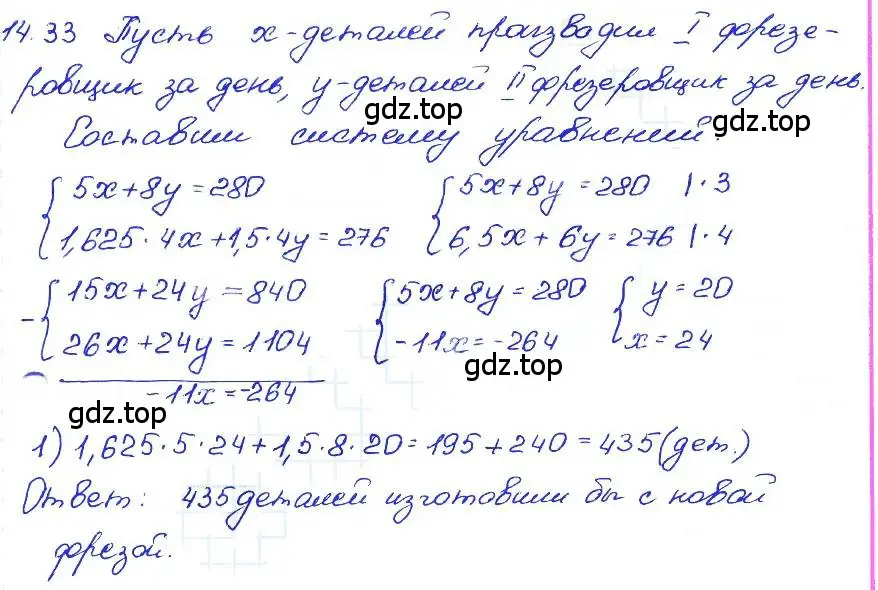 14.33 Пусть x-деталей производил I фрезе-
ровщик за день, y-деталей II фрезеровщик за день.
gdz.top
gdz.top
Составим систему уравнений:
{ 5x+8y=280 { 5x+8y=280 |·3
{ 1,625·4x+1,5·4y=276 { 6,5x+6y=276 |·4
- { 15x+24y=840 { 5x+8y=280 { y=20
{ 26x+24y=1104 { -11x=-264 { x=24
gdz.top
-11x=-264
gdz.top
1) 1,625·5·24+1,5·8·20=195+240=435(дет.)
Ответ: 435 деталей изготовили бы с новой
фрезой.